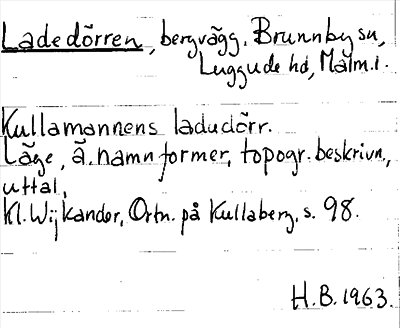 Ladedörren, bergvägg. Brunnby sn,
Luggude hd, Malm.l.
Kullamannens ladudörr.
Läge, ä. namnformer, topogr. beskrivn.,
uttal,
Kl. Wijkander, Ortn. på Kullaberg, s. 98.
H.B. 1963.